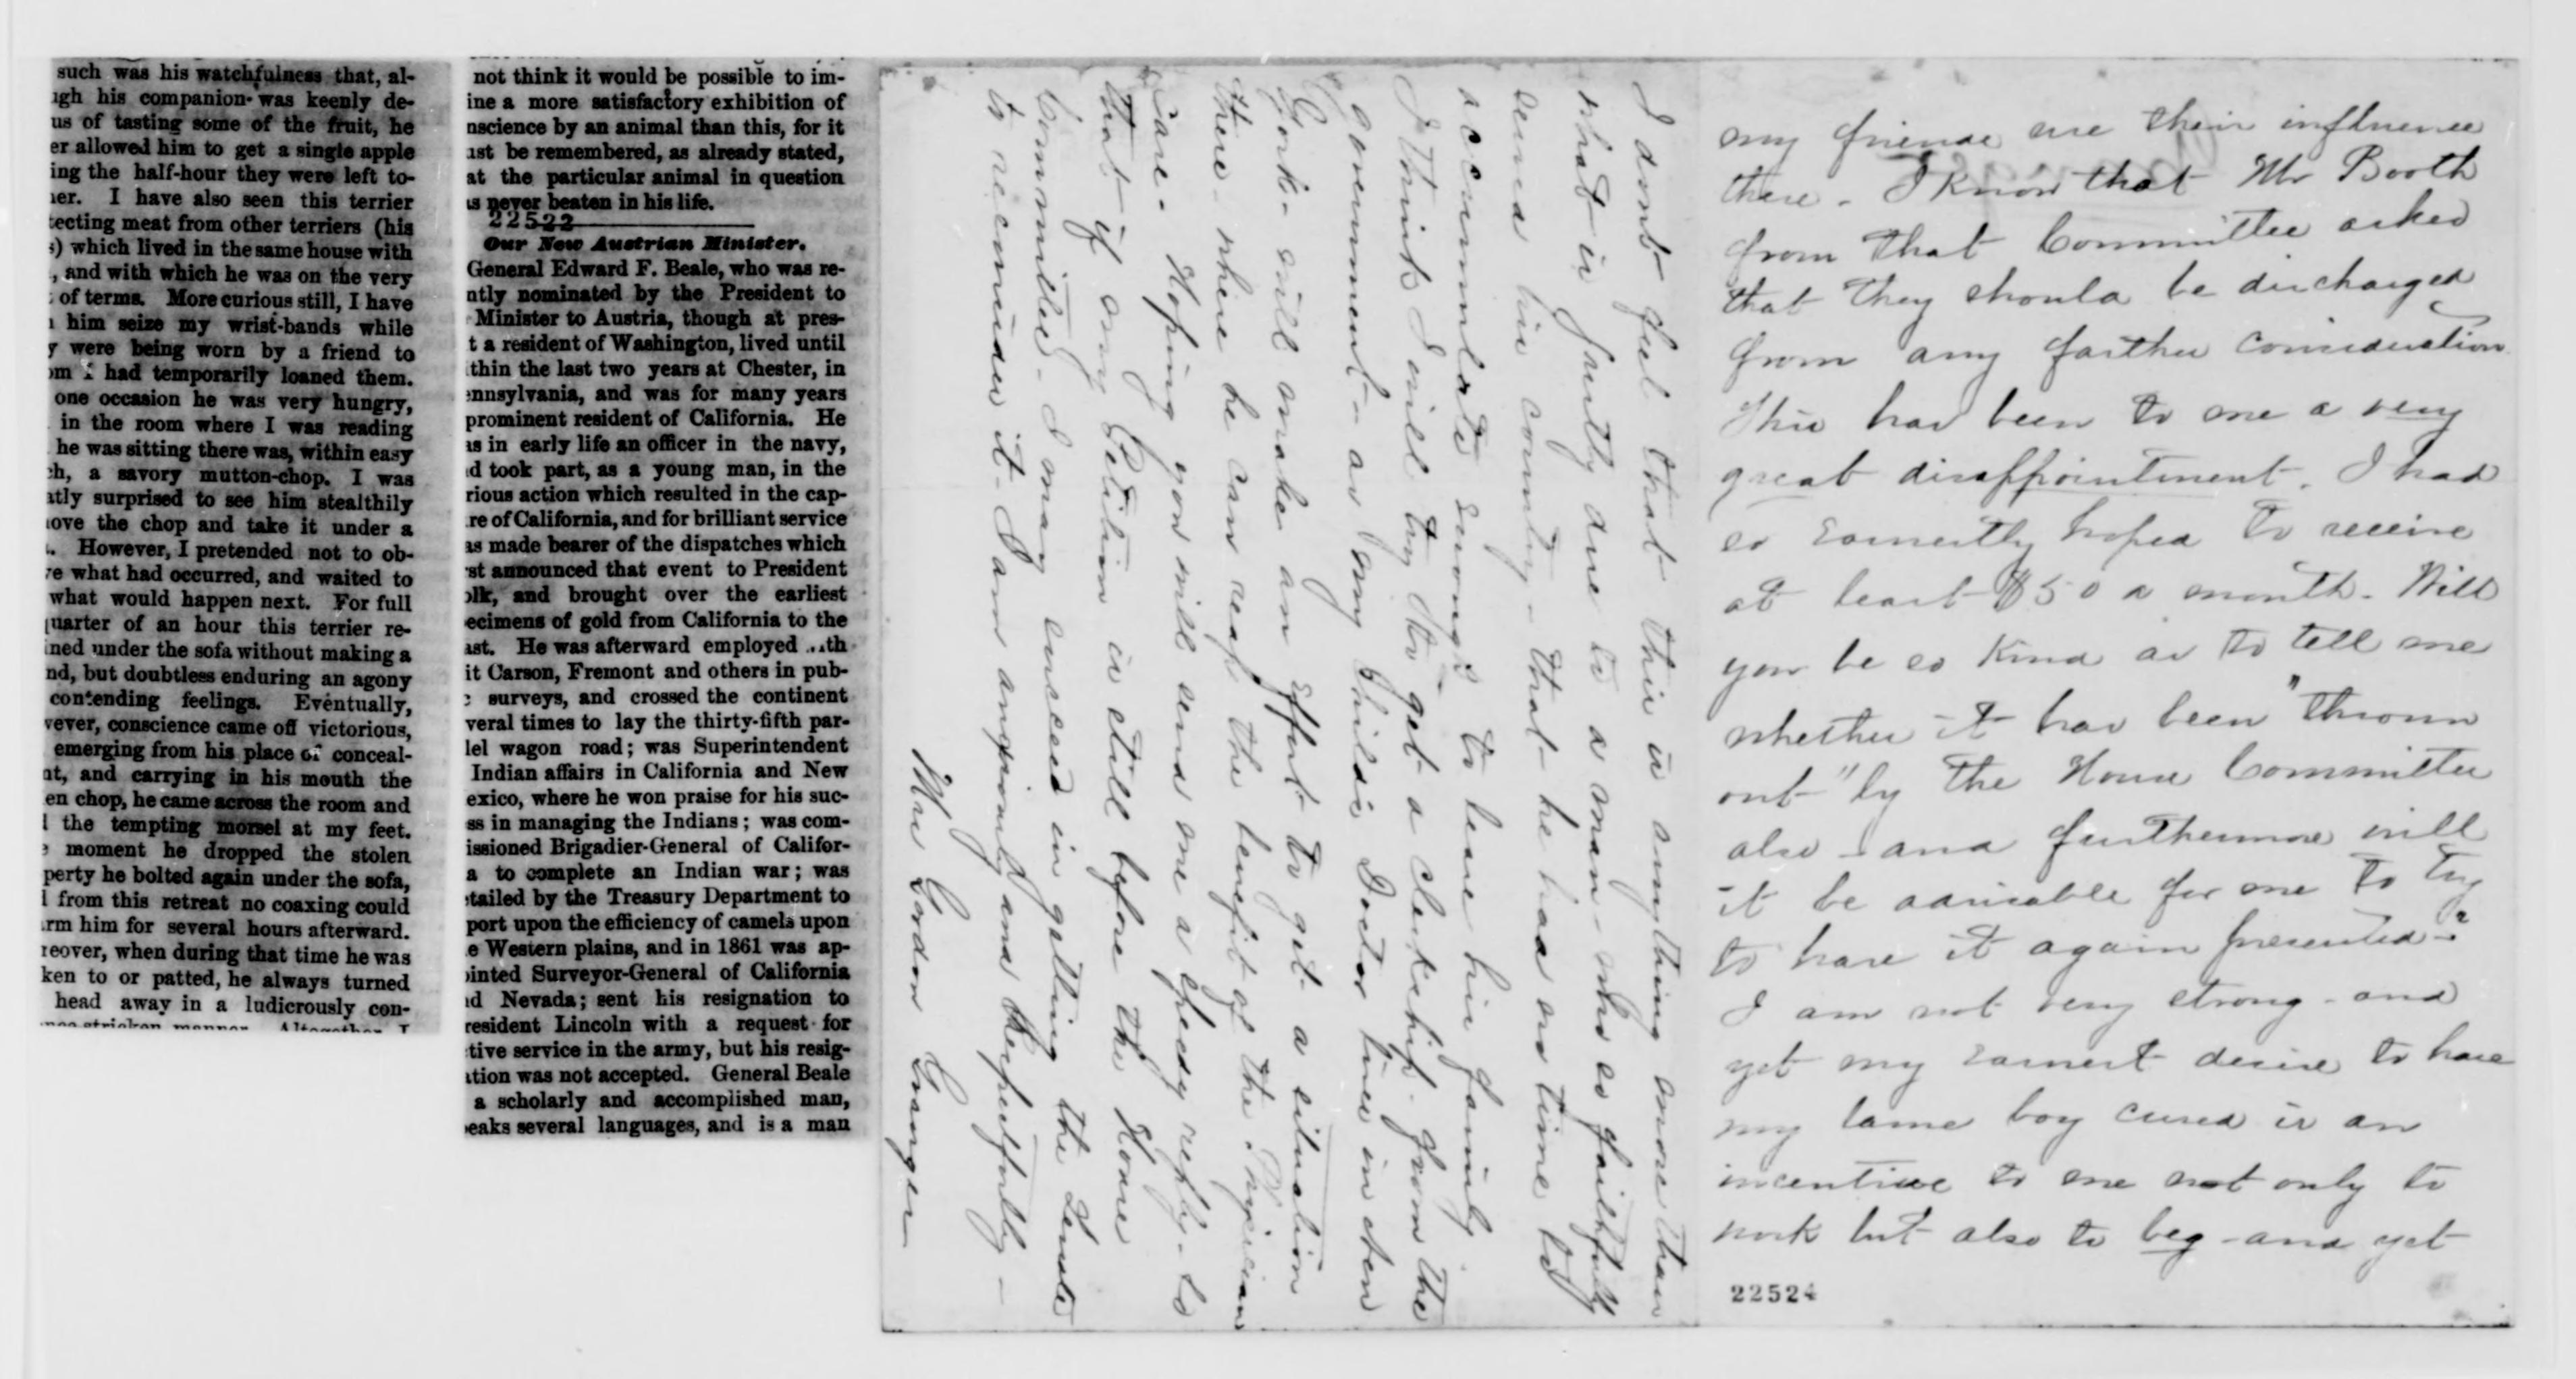 such was his watchfulness that, al-
igh his companion was keenly de-
us of tasting some of the fruit, he
er allowed him to get a single apple
ing the half-hour they were left to-
ier. I have also seen this terrier
tecting meat from other terriers (his
s) which lived in the same house with
, and with which he was on the very
of terms. More curious still, I have
him seize my wrist-bands while
y were being worn by a friend to
om I had temporarily loaned them.
one occasion he was very hungry,
in the room where I was reading
he was sitting there was, within easy
ch, a savory mutton-chop. I was
atly surprised to see him stealthily
ove the chop and take it under a
. However, I pretended not to ob-
re what had occurred, and waited to
what would happen next. For full
quarter of an hour this terrier re-
ined under the sofa without making a
nd, but doubtless enduring an agony
contending feelings. Eventually,
vever, conscience came off victorious,
emerging from his place of conceal-
nt, and carrying in his mouth the
en chop, he came across the room and
l the tempting morsel at my feet.
e moment he dropped the stolen
perty he bolted again under the sofa,
l from this retreat no coaxing could
arm him for several hours afterward.
reover, when during that time he was
ken to or patted, he always turned
head away in a ludicrously con-
nce-stricken manner. Altogether I
not think it would be possible to im-
ine a more satisfactory exhibition of
nscience by an animal than this, for it
ust be remembered, as already stated,
at the particular animal in question
is never beaten in his life.
22522
Our New Austrian Minister.
General Edward F. Beale, who was re-
ntly nominated by the President to
Minister to Austria, though at pres-
t a resident of Washington, lived until
thin the last two years at Chester, in
ennsylvania, and was for many years
prominent resident of California. He
as in early life an officer in the navy,
d took part, as a young man, in the
rious action which resulted in the cap-
re of California, and for brilliant service
as made bearer of the dispatches which
rst announced that event to President
olk, and brought over the earliest
ecimens of gold from California to the
ast. He was afterward employed ..th
it Carson, Fremont and others in pub-
c surveys, and crossed the continent
veral times to lay the thirty-fifth par-
lel wagon road; was Superintendent
Indian affairs in California and New
exico, where he won praise for his suc-
ss in managing the Indians; was com-
issioned Brigadier-General of Califor-
a to complete an Indian war; was
etailed by the Treasury Department to
port upon the efficiency of camels upon
e Western plains, and in 1861 was ap-
ointed Surveyor-General of California
nd Nevada; sent his resignation to
resident Lincoln with a request for
ctive service in the army, but his resig-
ation was not accepted. General Beale
a scholarly and accomplished man,
peaks several languages, and is a man
my friends use their influence
there. I know that Mr Booth
from that Committee asked
that they should be discharged
from any farther consideration
This has been to me a very
great disappointment. I had
so earnestly hoped to receive
at least $50 a month. Will
you be so kind as to tell me
whether it has been "thrown
out" by the House Committee
also - and furthermore will
it be advisable for me to try
to have it again presented?
I am not very strong - and
yet my earnest desire to have
my lame boy cured is an
incentive to me not only to
work but also to beg - and yet
22524
I dont feel that this is anything more than
what is justly due to a man - who so faithfully
served his country - that he had no time to
accumulate enough to leave his family
I think I will try to get a clerkship from the
government - as my childs Doctor lives in New
York - will make an effort to get a situation
there - where he can reap the benefit of the Physicians
Care - Hoping you will send me a speedy reply - So
that if my Petition is still before the House
Committee - I may succeed in getting the Senate
to reconsider it - I am anxiously and Respectfully -
Mrs Gordon Granger